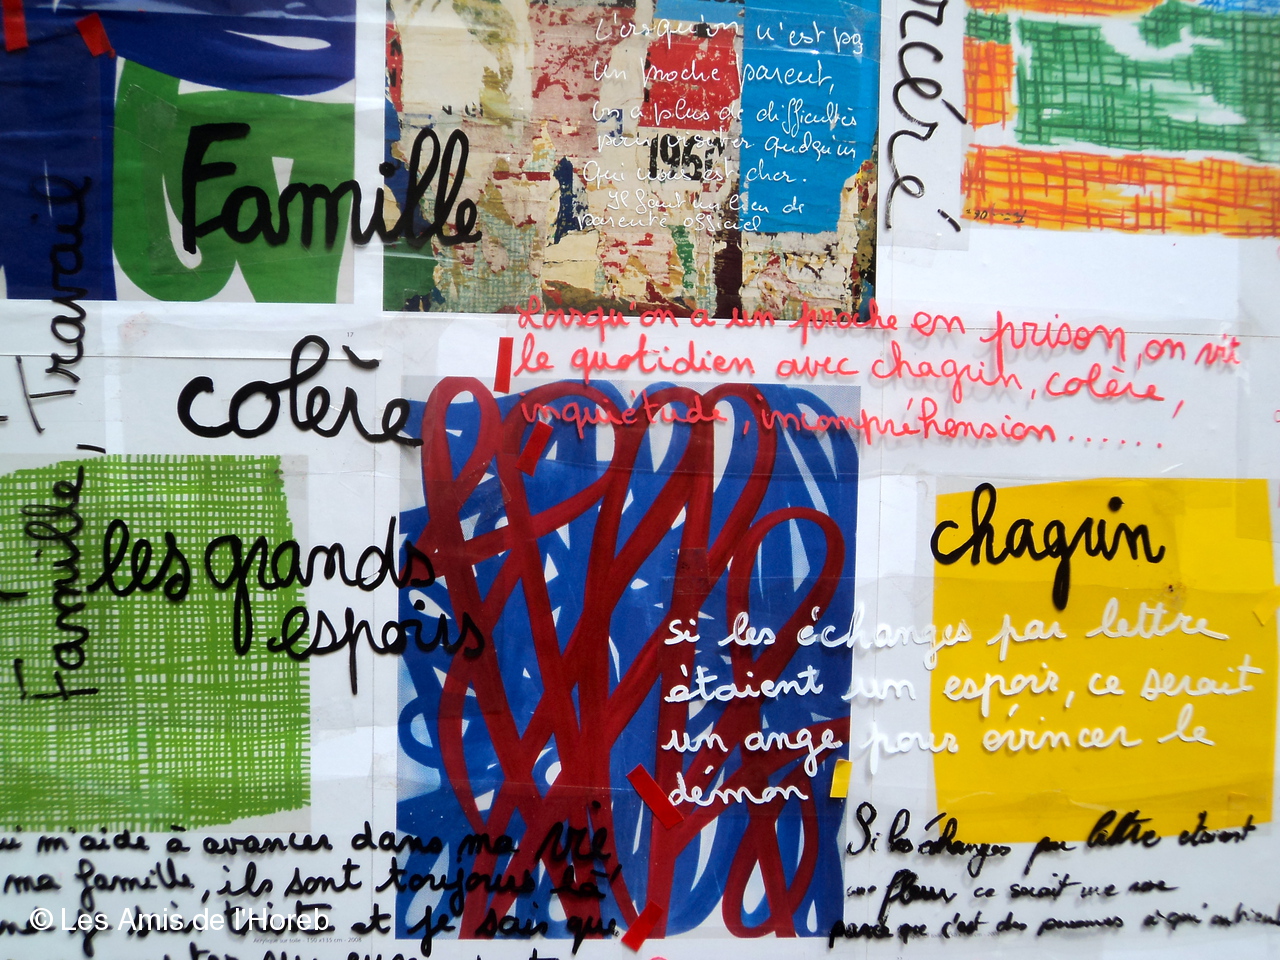 Lorsqu'on n'est pas
un proche parent,
on a plus de difficultés
pour visiter quelqu'un
Qui nous est cher.
Il faut un lien de
parenté officiel
196
Famille
rcéré
Travail
Lorsqu'on a un proche en prison, on vit
le quotidien avec chagrin, colère,
inquiétude, incompréhension......
colère
Famille,
les grands
espoirs
chagrin
si les échanges par lettre
étaient un espoir, ce serait
un ange pour évincer le
démon
ui m'aide à avancer dans ma vie
ma famille, ils sont toujours là
et je sais que
Si les échanges par lettre étaient
une fleur ce serait une rose
parce que c'est des personnes à qui
Acrylique sur toile - 150 x 135 cm - 2008
12
© Les Amis de l'Horeb